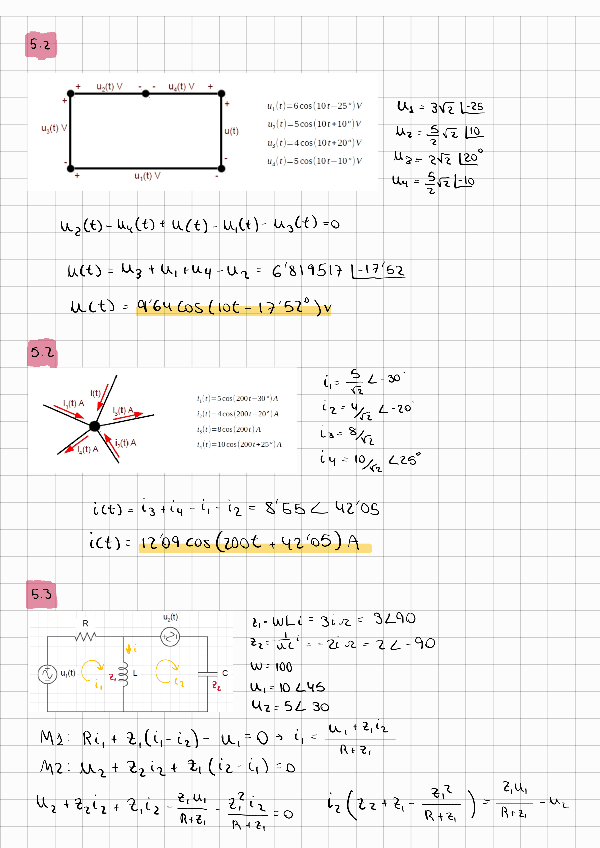 5.2
+ u₂(t) V - - u₄(t) V +
+ +
u₃(t) V u(t)
- -
+ u₁(t) V -
u₁(t)=6cos(10t−25°)V
u₂(t)=5cos(10t+10°)V
u₃(t)=4cos(10t+20°)V
u₄(t)=5cos(10t−10°)V
u₁ = 3√2 ∠-25
u₂ = 5/2 √2 ∠10
u₃ = 2√2 ∠20°
u₄ = 5/2 √2 ∠-10
u₂(t) - u₄(t) + u(t) - u₁(t) - u₃(t) = 0
u(t) = u₃ + u₁ + u₄ - u₂ = 6'819517 ∠-17'52
u(t) = 9'64 cos(10t - 17'52°) V
5.2
i(t)
i₁(t) A
i₃(t) A
i₂(t) A
i₁(t)=5cos(200t−30°)A
i₂(t)=4cos(200t−20°)A
i₃(t)=8cos(200t)A
i₄(t)=10cos(200t+25°)A
i₁ = 5/√2 ∠-30°
i₂ = 4/√2 ∠-20°
i₃ = 8/√2
i₄ = 10/√2 ∠25°
i(t) = i₃ + i₄ - i₁ - i₂ = 8'55 ∠ 42'05
i(t) = 12'09 cos(200t + 42'05) A
5.3
R u₂(t)
i
u₁(t) i₁ z₁ L i₂ C
z₂
z₁ = wLi = 3i Ω = 3∠90
z₂ = 1/wc i = -2i Ω = 2∠-90
w = 100
u₁ = 10 ∠45
u₂ = 5∠30
M1: Ri₁ + z₁(i₁-i₂) - u₁ = 0 → i₁ = (u₁ + z₁i₂)/(R+z₁)
M2: u₂ + z₂i₂ + z₁(i₂-i₁) = 0
u₂ + z₂i₂ + z₁i₂ - z₁u₁/(R+z₁) - z₁²i₂/(R+z₁) = 0 i₂(z₂ + z₁ - z₁²/(R+z₁)) = z₁u₁/(R+z₁) - u₂